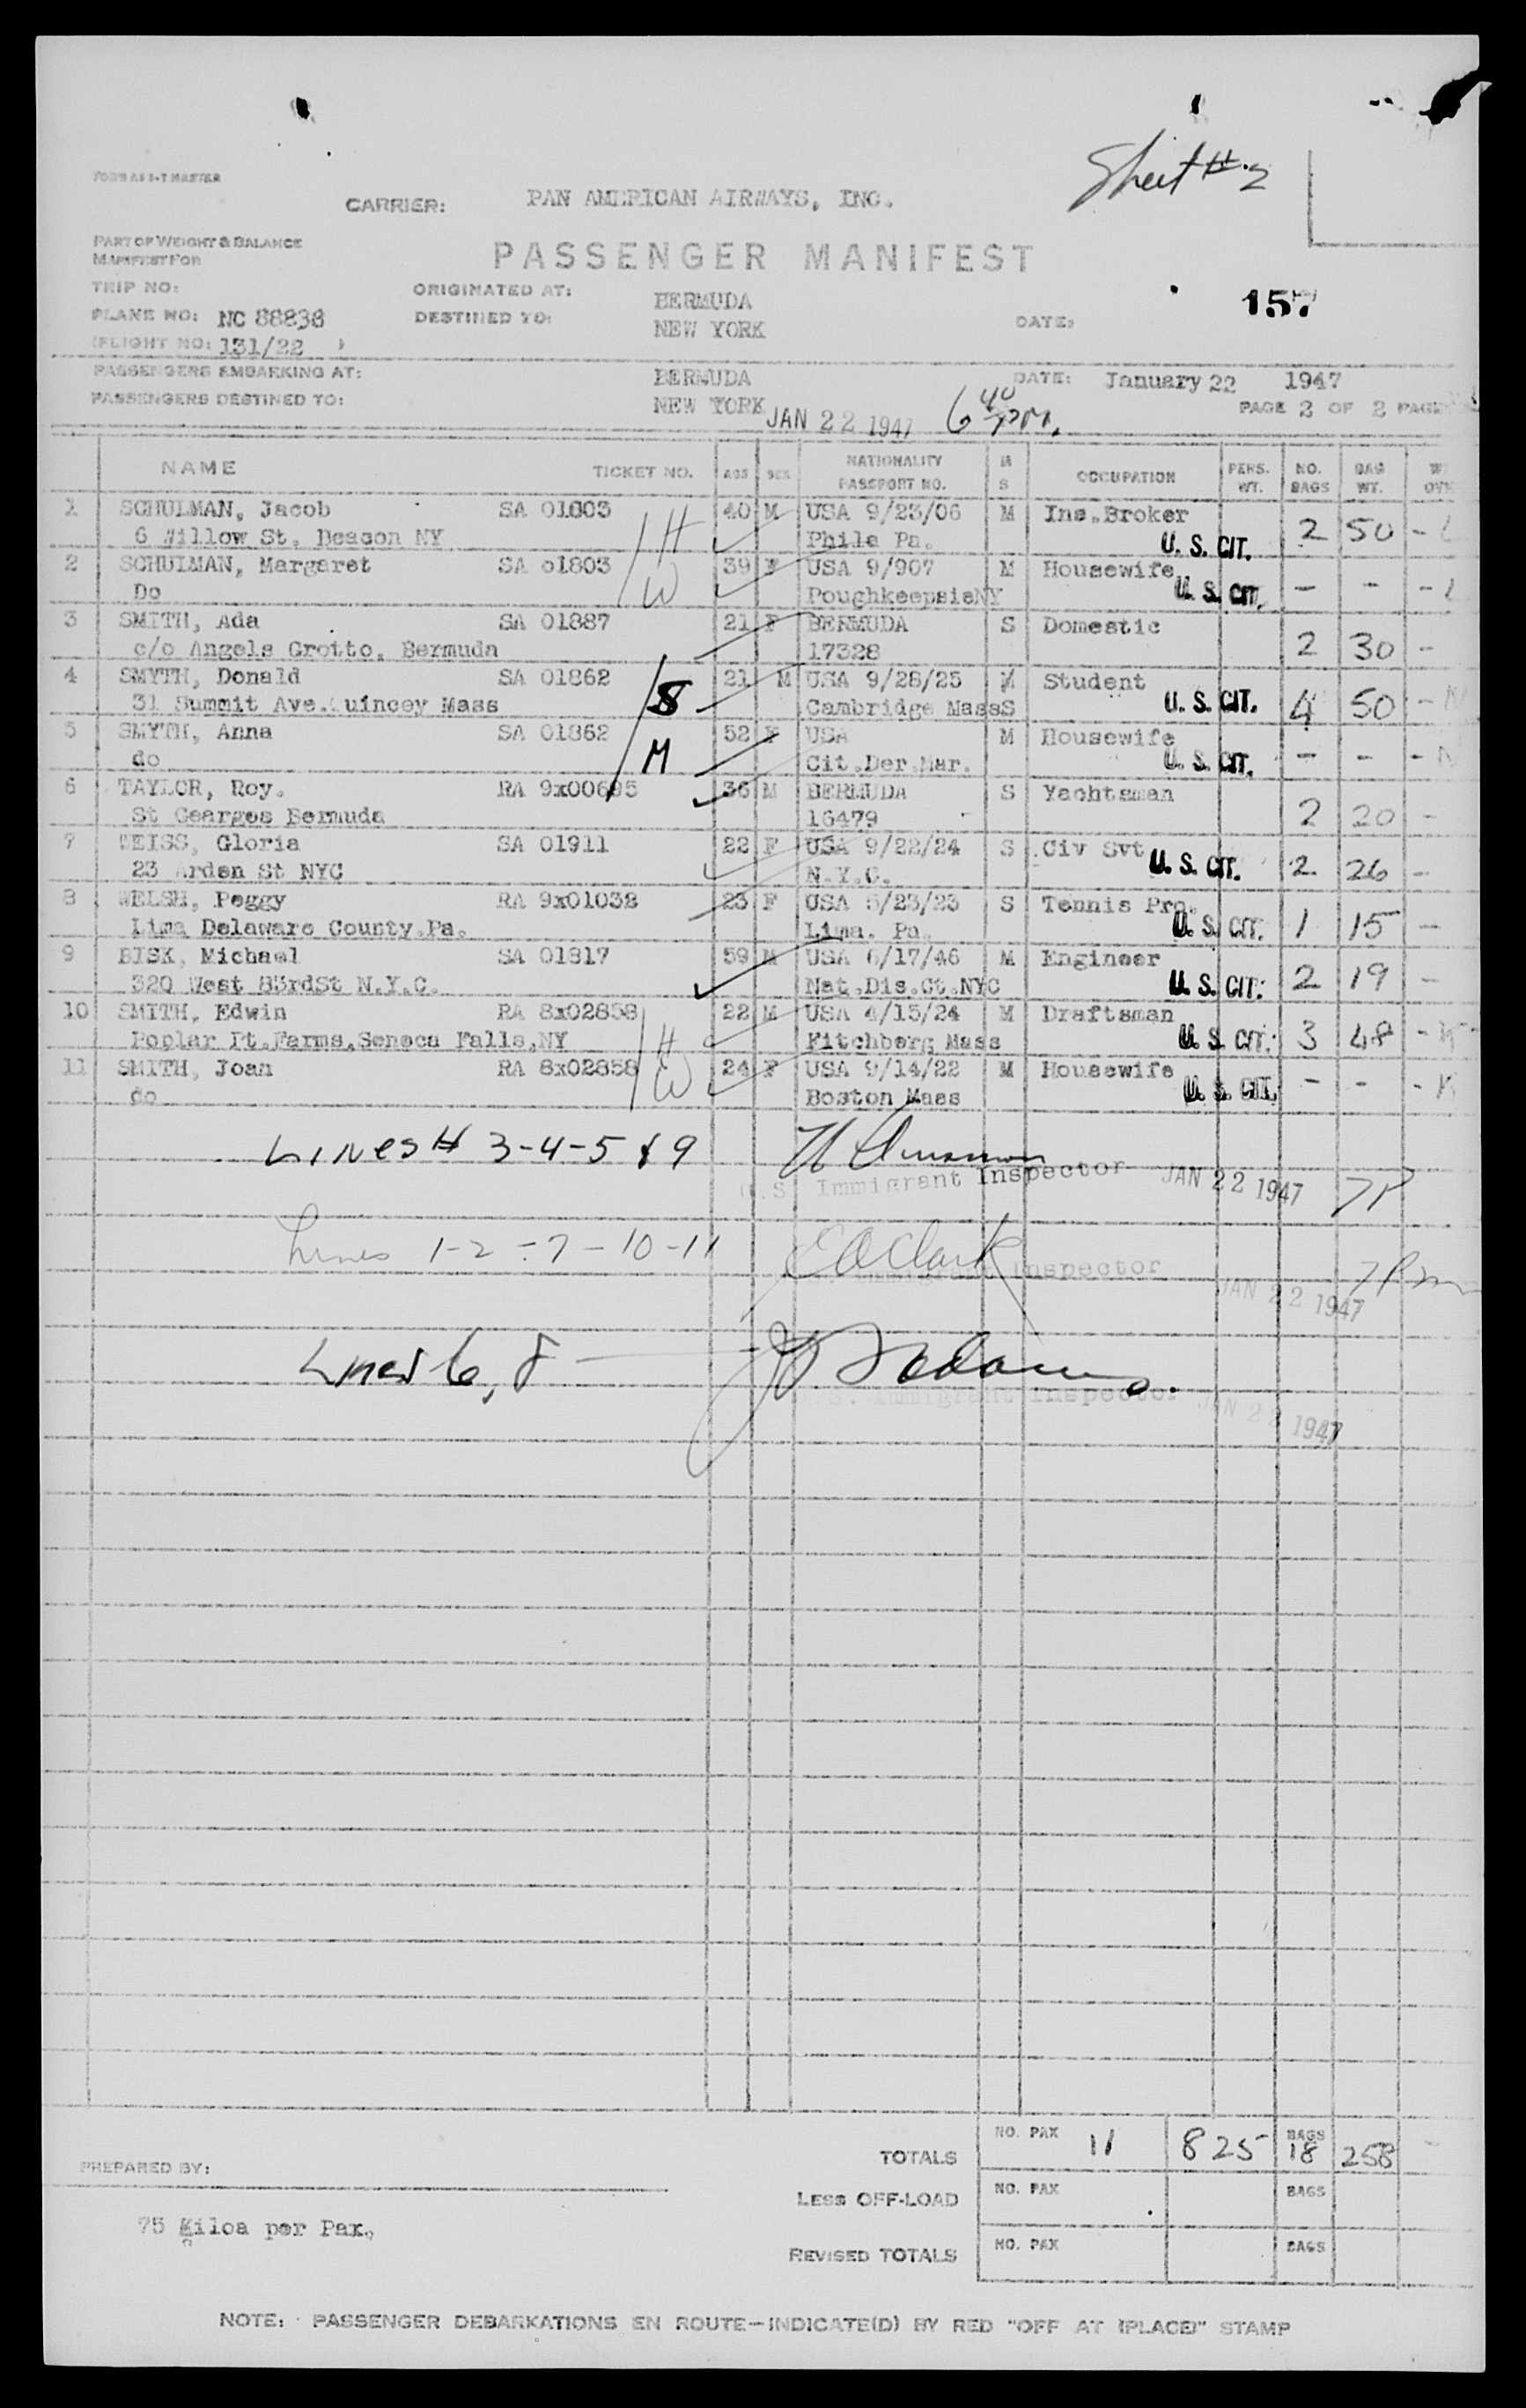 Sheet # 2
FORM AF 3-T MASTER
CARRIER: PAN AMERICAN AIRWAYS, INC.
PART OF WEIGHT & BALANCE
MANIFEST FOR
PASSENGER MANIFEST
TRIP NO: ORIGINATED AT: BERMUDA
157
PLANE NO: NC 88838 DESTINED TO: NEW YORK DATE:
(FLIGHT NO: 131/22 )
PASSENGERS EMBARKING AT: BERMUDA DATE: January 22 1947
PASSENGERS DESTINED TO: NEW YORK JAN 22 1947 6 40 PM. PAGE 2 OF 2 PAGE
NAME TICKET NO. AGE SEX NATIONALITY PASSPORT NO. M S OCCUPATION PERS. WT. NO. BAGS BAG WT.
1 SCHULMAN, Jacob SA 01803 H 40 M USA 9/23/06 M Ins.Broker 2 50 -
6 Willow St. Beacon NY Phila Pa. U. S. CIT.
2 SCHULMAN, Margaret SA o1803 W 39 F USA 9/907 M Housewife - - -
Do PoughkeepsieNY U. S. CIT.
3 SMITH, Ada SA 01887 21 F BERMUDA S Domestic 2 30 -
c/o Angels Grotto, Bermuda 17328
4 SMYTH, Donald SA 01862 S 21 M USA 9/28/25 Student 4 50 -
31 Summit Ave. uincey Mass Cambridge MassS U. S. CIT.
5 SMYTH, Anna SA 01862 M 52 F USA M Housewife - - -
do Cit.Der.Mar. U. S. CIT.
6 TAYLOR, Roy. RA 9x00695 36 M BERMUDA S Yachtsman 2 20 -
St Gearges Bermuda 16479
7 WEISS, Gloria SA 01911 22 F USA 9/22/24 S Civ Svt 2 26 -
23 Arden St NYC N.Y.C. U. S. CIT.
8 WELSH, Peggy RA 9x01038 23 F USA 5/23/23 S Tennis Pro. 1 15 -
Lima Delaware County.Pa. Lima. Pa. U. S. CIT.
9 BISK, Michael SA 01817 59 M USA 6/17/46 M Engineer 2 19 -
320 West 83rdSt N.Y.C. Nat.Dis.Ct.NYC U. S. CIT.
10 SMITH, Edwin RA 8x02858 H 22 M USA 4/15/24 M Draftsman 3 48 -
Poplar Pt.Farms,Seneca Falls,NY Fitchberg Mass U. S. CIT.
11 SMITH, Joan RA 8x02858 W 24 F USA 9/14/22 M Housewife - - -
do Boston Mass U. S. CIT.
Lines # 3-4-5 & 9
U.S. Immigrant Inspector JAN 22 1947 7P
Lines 1-2-7-10-11 E A Clark
Immigrant Inspector JAN 22 1947 7Pm
Lines 6, 8
S. Immigrant Inspector JAN 22 1947
TOTALS NO. PAX 11 825 BAGS 18 258 -
PREPARED BY:
LESS OFF-LOAD NO. PAX BAGS
75 Kiloa per Pax.
REVISED TOTALS NO. PAX BAGS
NOTE: PASSENGER DEBARKATIONS EN ROUTE—INDICATE(D) BY RED "OFF AT (PLACE)" STAMP